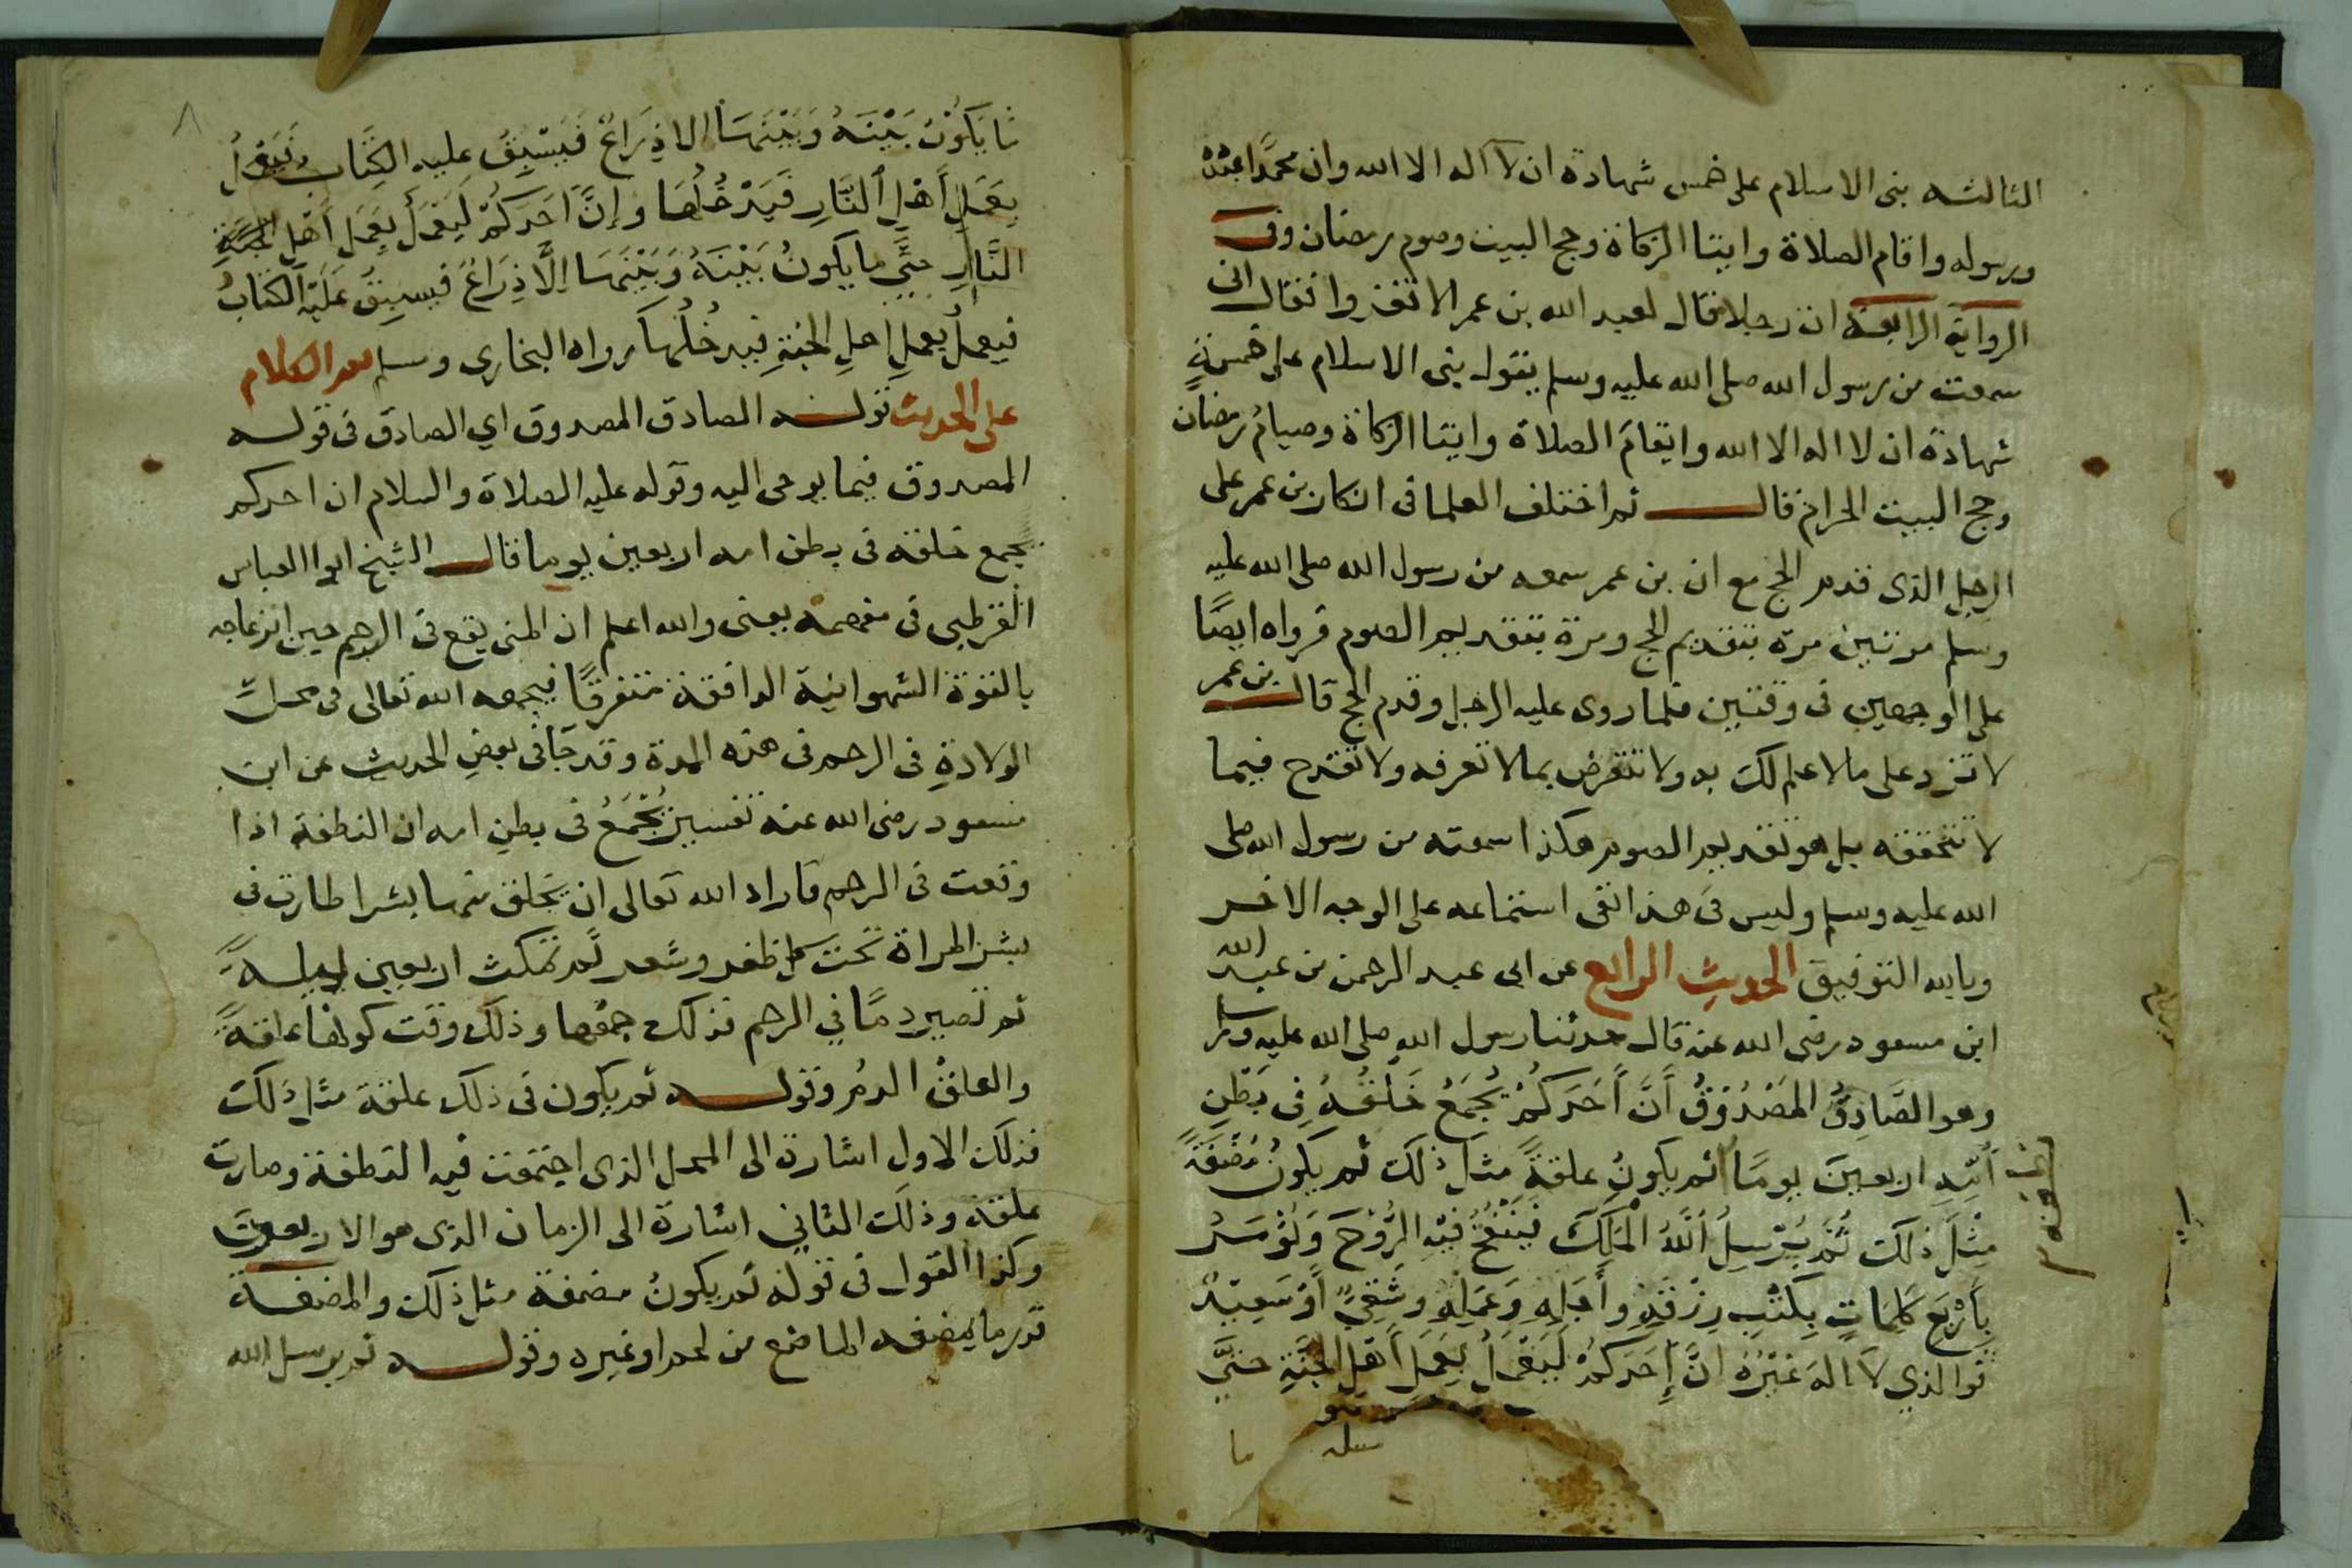 الثالثه بنى الاسلام على خمس شهادة ان لا اله الا الله وان محمدا عبده
ورسوله واقام الصلاة وايتا الزكاة وحج البيت وصوم رمضان وفى
الرواية الرابعة ان رجلا قال لعبد الله بن عمر الا تغزوا فقال انى
سمعت من رسول الله صلى الله عليه وسلم يقول بنى الاسلام على خمسةٍ
شهادة ان لا اله الا الله وايقامَ الصلاة وايتا الزكاة وصيامُ رمضان
وحج البيت الحرام قال ثم اختلف العلما فى انكار بن عمر على
الرجل الذى قدم الحج مع ان بن عمر سمعه من رسول الله صلى الله عليه
وسلم مرتين مرة بتقديم الحج ومرة بتقديم الصوم فرواه ايضًا
على الوجهين فى وقتين فلما روى عليه الرجل وقدم الحج قال بن عمر
لا تزد على ما لا علم لك به ولا تتعرض بما لا تعرفه ولا تقدح فيما
لا تتحققه بل هو تقديم الصوم هكذا سمعته من رسول الله صلى
الله عليه وسلم وليس فى هذا نفى استماعه على الوجه الاخر
وبالله التوفيق الحديث الرابع عن ابى عبد الرحمن بن عبد الله
ابن مسعود رضى الله عنه قال حدثنا رسول الله صلى الله عليه وسلم
وهو الصَّادِقُ المَصْدُوقُ أَنَّ أَحَدَكُمْ يُجْمَعُ خَلْقُهُ فِى بَطْنِ
أُمِّهِ اربعينَ يومًا ثم يكونُ علقةً مثل ذلك ثم يكونُ مُضْغَةً
مِثْلَ ذلك ثُمَّ يُرْسِلُ اللَّهُ الْمَلَكَ فَيَنْفُخُ فيْهِ الرُّوْحَ وَيُؤْمَرُ
بِأَرْبَعِ كَلِمَاتٍ بِكَتْبِ رِزْقِهِ وأَجَلِهِ وَعَمَلِهِ وشَقِيٌّ أَوْ سَعِيْدٌ
فوالذي لَا الهَ غَيْرُهُ انَّ أَحَدَكُمْ لَيَعْمَلُ بِعَمَلِ أَهْلِ الجَنَّةِ حتَّى
ما
٨
ما يَكُوْنُ بَيْنَهُ وَبَيْنَهَا الا ذِرَاعٌ فَيَسْبِقُ عليه الكِتَابُ فَيَعْمَلُ
بِعَمَلِ أَهْلِ النَّارِ فَيَدْخُلُهَا وإنَّ أَحَدَكُمْ لَيَعْمَلُ بِعَمَلِ أَهْلِ
النَّارِ حتَّى ما يكونُ بَيْنَهُ وَبَيْنَهَا إِلَّا ذِرَاعٌ فيسبِقُ عَلَيْهِ الكتَابُ
فيعملُ بعملِ اهلِ الجنةِ فيدخُلُها رواه البخاري ومسلم الكلام
على الحديث قوله الصادق المصدوق اي الصادق فى قوله
المصدوق فيما يوحى اليه وقوله عليه الصلاة والسلام ان احدكم
يجمع خلقه فى بطن امه اربعين يوما قال الشيخ ابوا العباس
القرطبى فى مفهمه يعنى والله اعلم ان المنى يقع فى الرحم حين انزعاجه
بالقوة الشهوانية الدافقة متفرقًا فيجمعه الله تعالى فى محل
الولادةِ فى الرحم فى هذه المدة وقد جآ فى بعضِ الحديث عن ابن
مسعود رضى الله عنه تفسير يُجْمَعُ فى بطنِ امه ان النطفة اذا
وقعت فى الرحم فاراد الله تعالى ان يخلق منها بشرا طارت فى
بشر المراة تحت كل ظفر وشعر ثم تمكث اربعين ليلةً
ثم تصير دمًا في الرحم فذلك جمعها وذلك وقت كونها علقةً
والعلقُ الدمُ وقوله ثم يكون فى ذلك علقة مثل ذلك
فذلك الاول اشارة الى المحل الذى اجتمعت فيه النطفة وصارت
علقة وذلك الثاني اشارة الى الزمان الذى هو الاربعون
وكذا القول فى قوله ثم يكونُ مضغة مثل ذلك والمضغة
قدر ما يمضغه الماضغ من لحم او غيره وقوله ثم يرسل الله